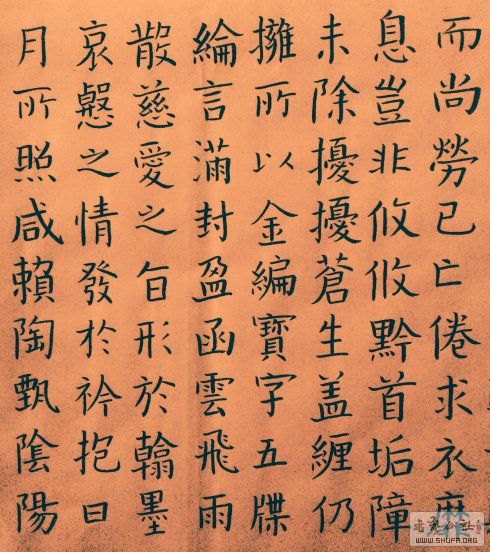 而尚勞已亡倦求衣靡
息豈非攸攸黔首垢障
未除擾擾蒼生盖纏仍
擁所以金編寶字五牒
綸言滿封盈函雲飛雨
散慈愛之旨形於翰墨
哀慇之情發於衿抱日
月所照咸賴陶甄陰陽
WWW.SHUFA.ORG